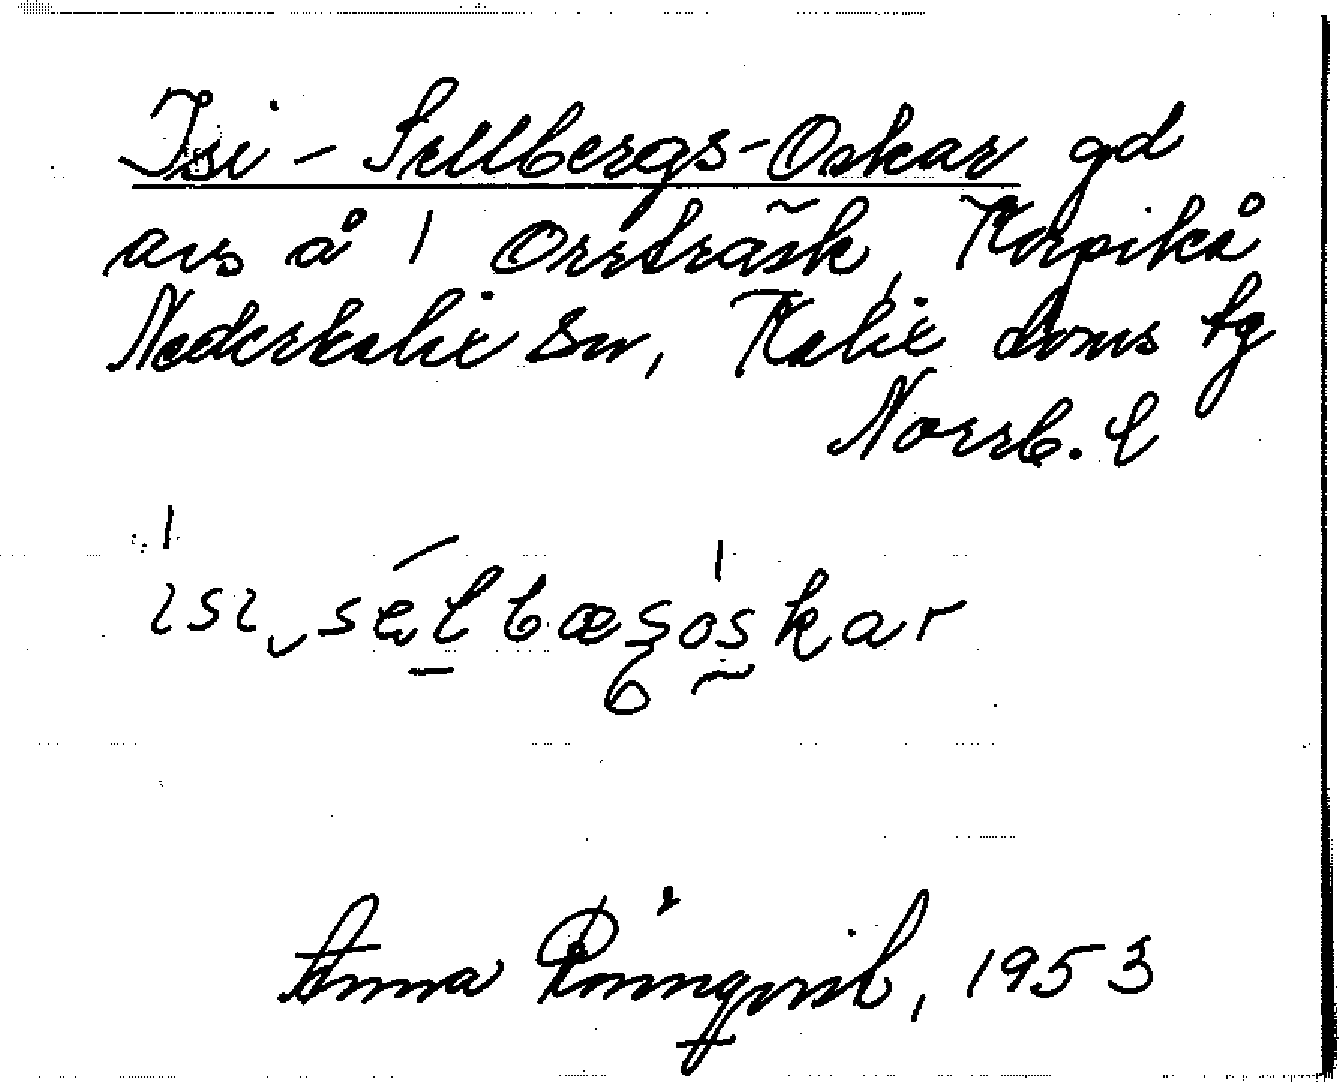 Isi-Sellbergs-Oskar gd
avs å 1 Orrträsk, Korpikå
Nederkalix sn, Kalix doms tg
Norrb. l
ısı sélbæsoskar
Anna Rönnqvist, 1953